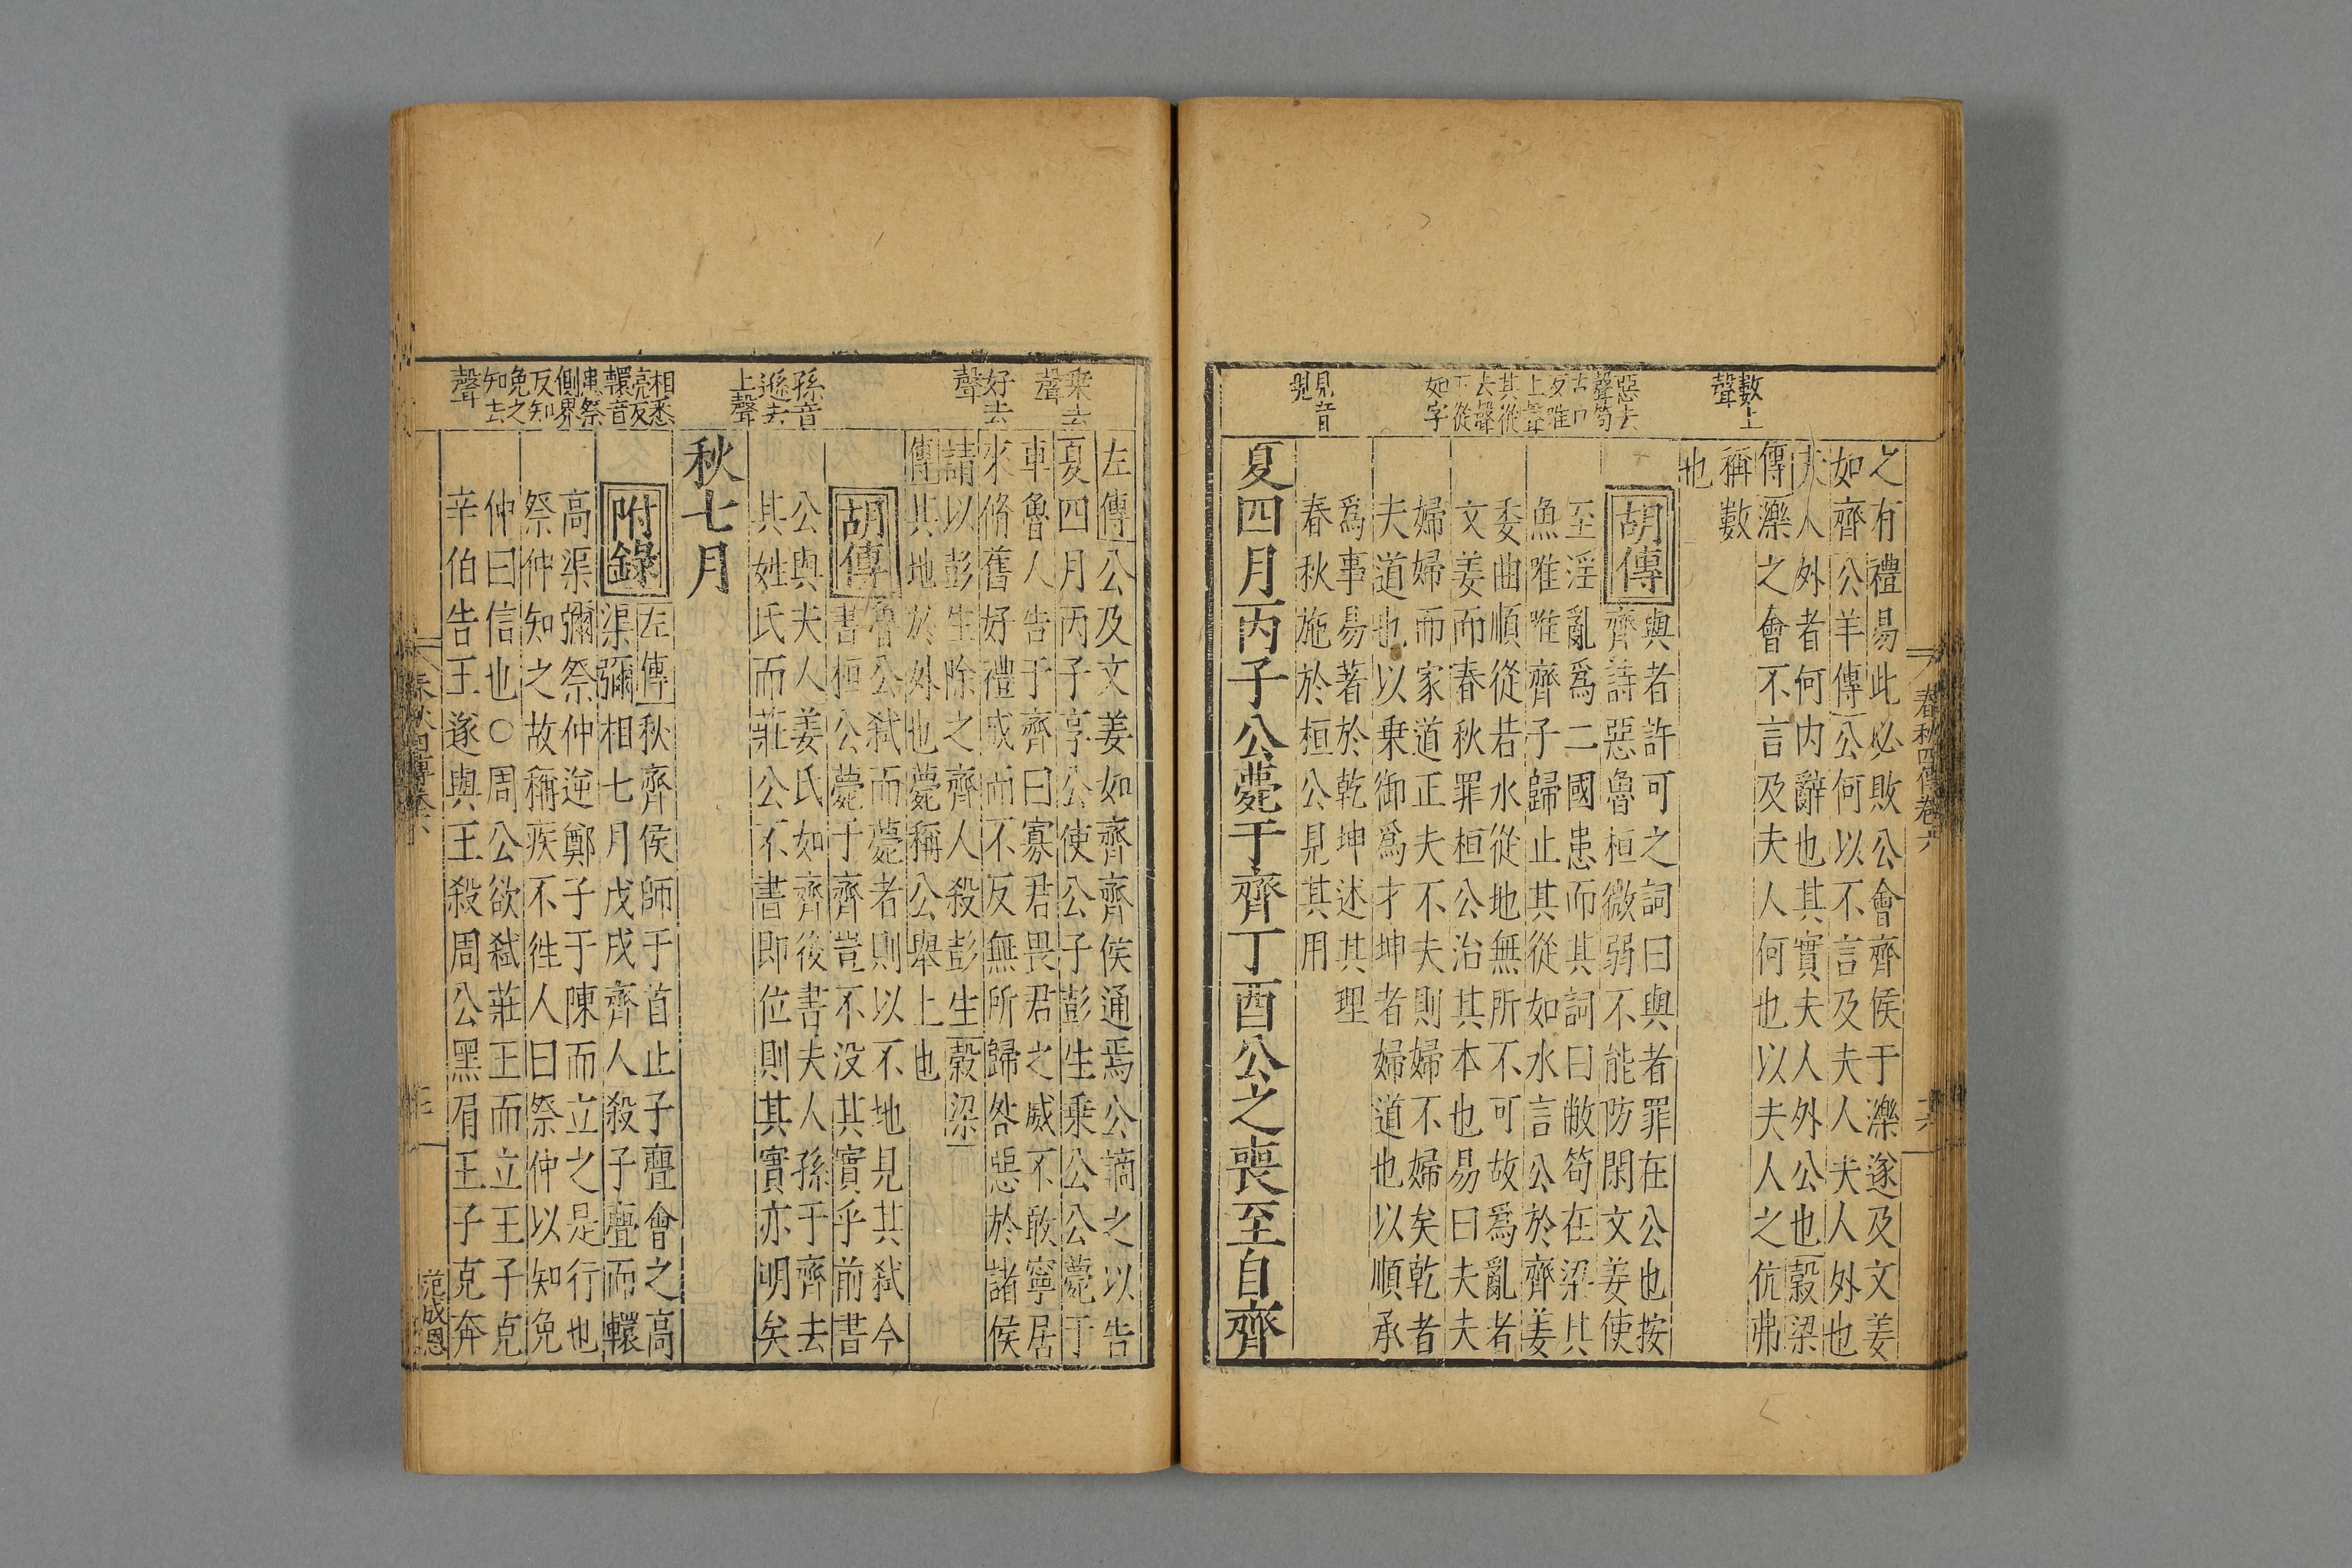 春秋四傳卷六
六
之有禮易此必敗公會齊侯于濼遂及文姜
如齊公羊傳公何以不言及夫人夫人外也
夫人外者何内辭也其實夫人外公也穀梁
傳濼之會不言及夫人何也以夫人之伉弗
稱數
也
胡傳
與者許可之詞曰與者罪在公也按
齊詩惡魯桓微弱不能防閑文姜使
至淫亂爲二國患而其詞曰敝笱在梁其
魚唯唯齊子歸止其從如水言公於齊姜
委曲順從若水從地無所不可故爲亂者
文姜而春秋罪桓公治其本也易曰夫夫
婦婦而家道正夫不夫則婦不婦矣乾者
夫道也以乗御爲才坤者婦道也以順承
爲事易著於乾坤述其理
春秋施於桓公見其用
夏四月丙子公薨于齊丁酉公之喪至自齊
數上
聲
惡去
聲笱
古口
反唯
上聲
其從
去聲
下從
如字
見音
現
左傳公及文姜如齊齊侯通焉公謫之以告
夏四月丙子享公使公子彭生乗公公薨于
車魯人告于齊曰寡君畏君之威不敢寧居
來脩舊好禮成而不反無所歸咎惡於諸侯
請以彭生除之齊人殺彭生穀梁
傳其地於外也薨稱公舉上也
胡傳
魯公弑而薨者則以不地見其弑今
書桓公薨于齊豈不没其實乎前書
公與夫人姜氏如齊後書夫人孫于齊去
其姓氏而莊公不書即位則其實亦明矣
秋七月
附錄
左傳秋齊侯師于首止子亹會之高
渠彌相七月戊戌齊人殺子亹而轘
高渠彌祭仲逆鄭子于陳而立之是行也
祭仲知之故稱疾不徃人曰祭仲以知免
仲曰信也○周公欲弑莊王而立王子克
辛伯告王遂與王殺周公黑肩王子克奔
乗去
聲
好去
聲
孫音
遜去
上聲
相悉
亮反
轘音
患祭
側界
反知
免之
知去
聲
范成恩